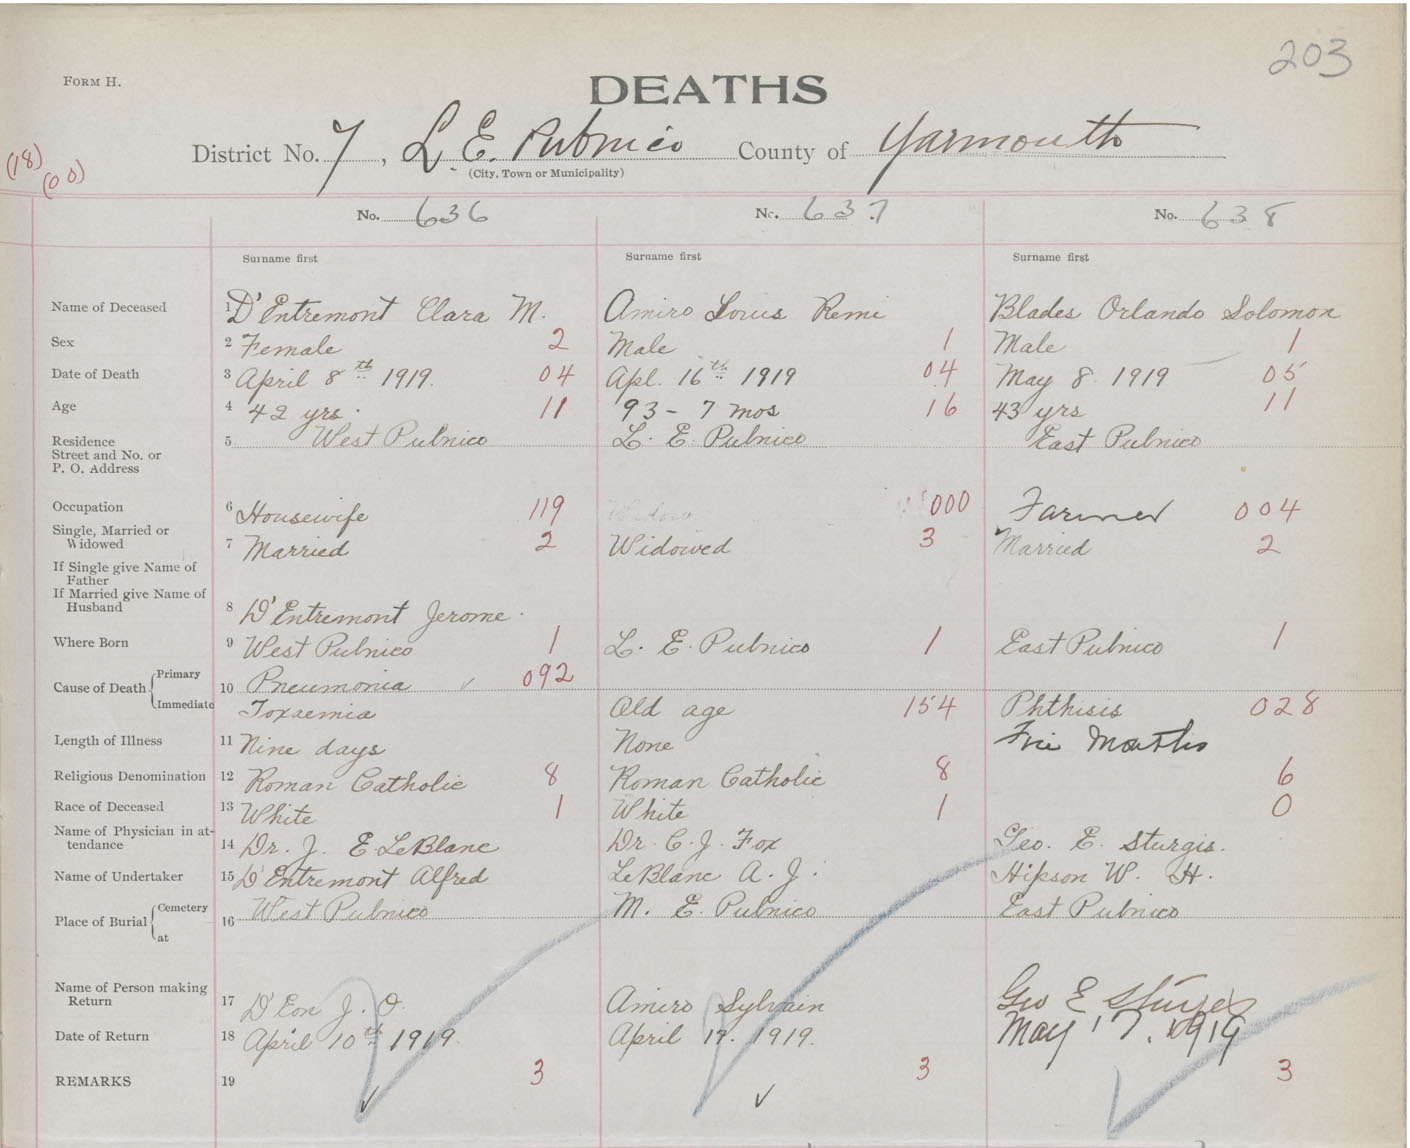 203
FORM H.
DEATHS
District No. 7, L. E. Pubnico County of Yarmouth
(City, Town or Municipality)
(18)
(00)
No. 636 No. 637 No. 638
Surname first Surname first Surname first
Name of Deceased 1 D'Entremont Clara M. Amiro Louis Remi Blades Orlando Solomon
Sex 2 Female 2 Male 1 Male 1
Date of Death 3 April 8th 1919. 04 Apl. 16th 1919 04 May 8 1919 05
Age 4 42 yrs. 11 93 - 7 mos 16 43 yrs 11
Residence 5 West Pubnico L. E. Pubnico East Pubnico
Street and No. or
P. O. Address
Occupation 6 Housewife 119 000 Farmer 004
Single, Married or
Widowed 7 Married 2 Widowed 3 Married 2
If Single give Name of
Father
If Married give Name of
Husband 8 D'Entremont Jerome.
Where Born 9 West Pubnico 1 L. E. Pubnico 1 East Pubnico 1
Cause of Death Primary 10 Pneumonia ✓ 092
Immediate Toxaemia Old age 154 Phthisis 028
Length of Illness 11 Nine days None Months
Religious Denomination 12 Roman Catholic 8 Roman Catholic 8 6
Race of Deceased 13 White 1 White 1 0
Name of Physician in at-
tendance 14 Dr. J. E. LeBlanc Dr. C. J. Fox Geo. E. Sturgis.
Name of Undertaker 15 D'Entremont Alfred LeBlanc A. J. Hipson W. H.
Place of Burial Cemetery 16 West Pubnico M. E. Pubnico East Pubnico
at
Name of Person making
Return 17 D'Eon J. O. Amiro Sylvain Geo E Sturges
Date of Return 18 April 10th 1919. April 17. 1919. May 17. 1919
REMARKS 19 3 3 3
✓ ✓